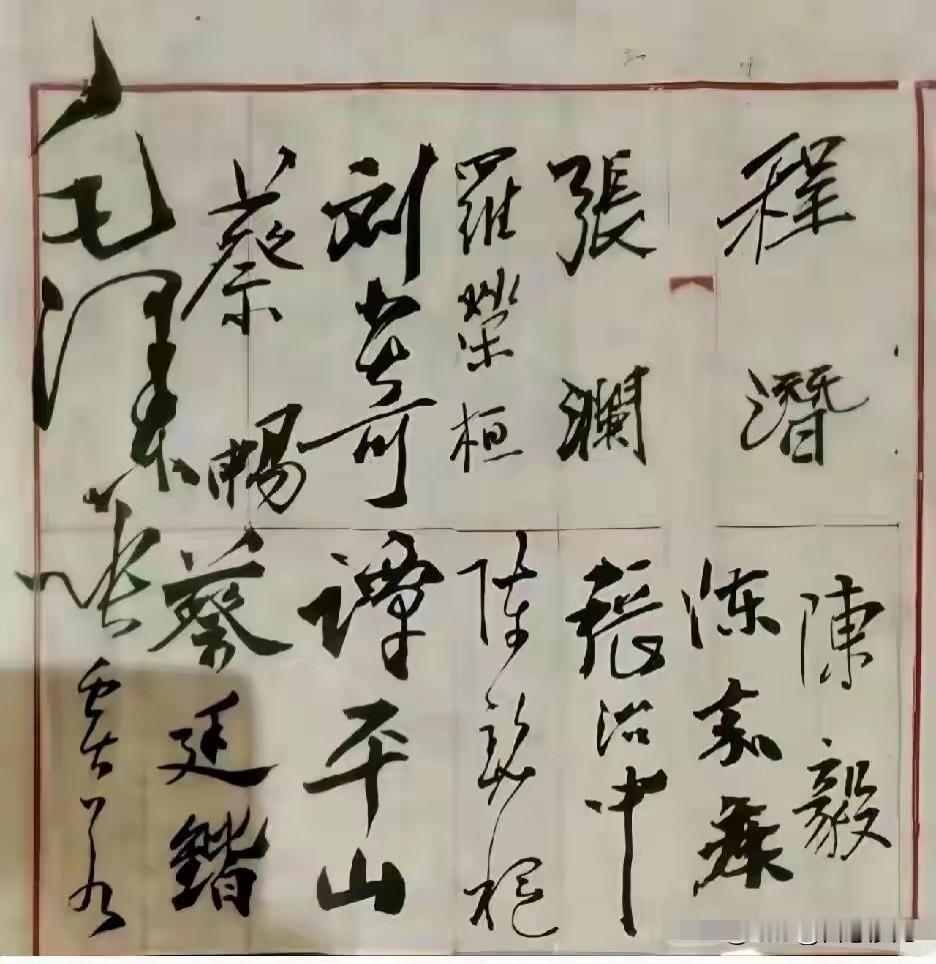 程潛
張瀾
羅榮桓
刘少奇
蔡暢
毛澤東
陳毅
陳嘉庚
張治中
陳銘樞
譚平山
蔡廷鍇